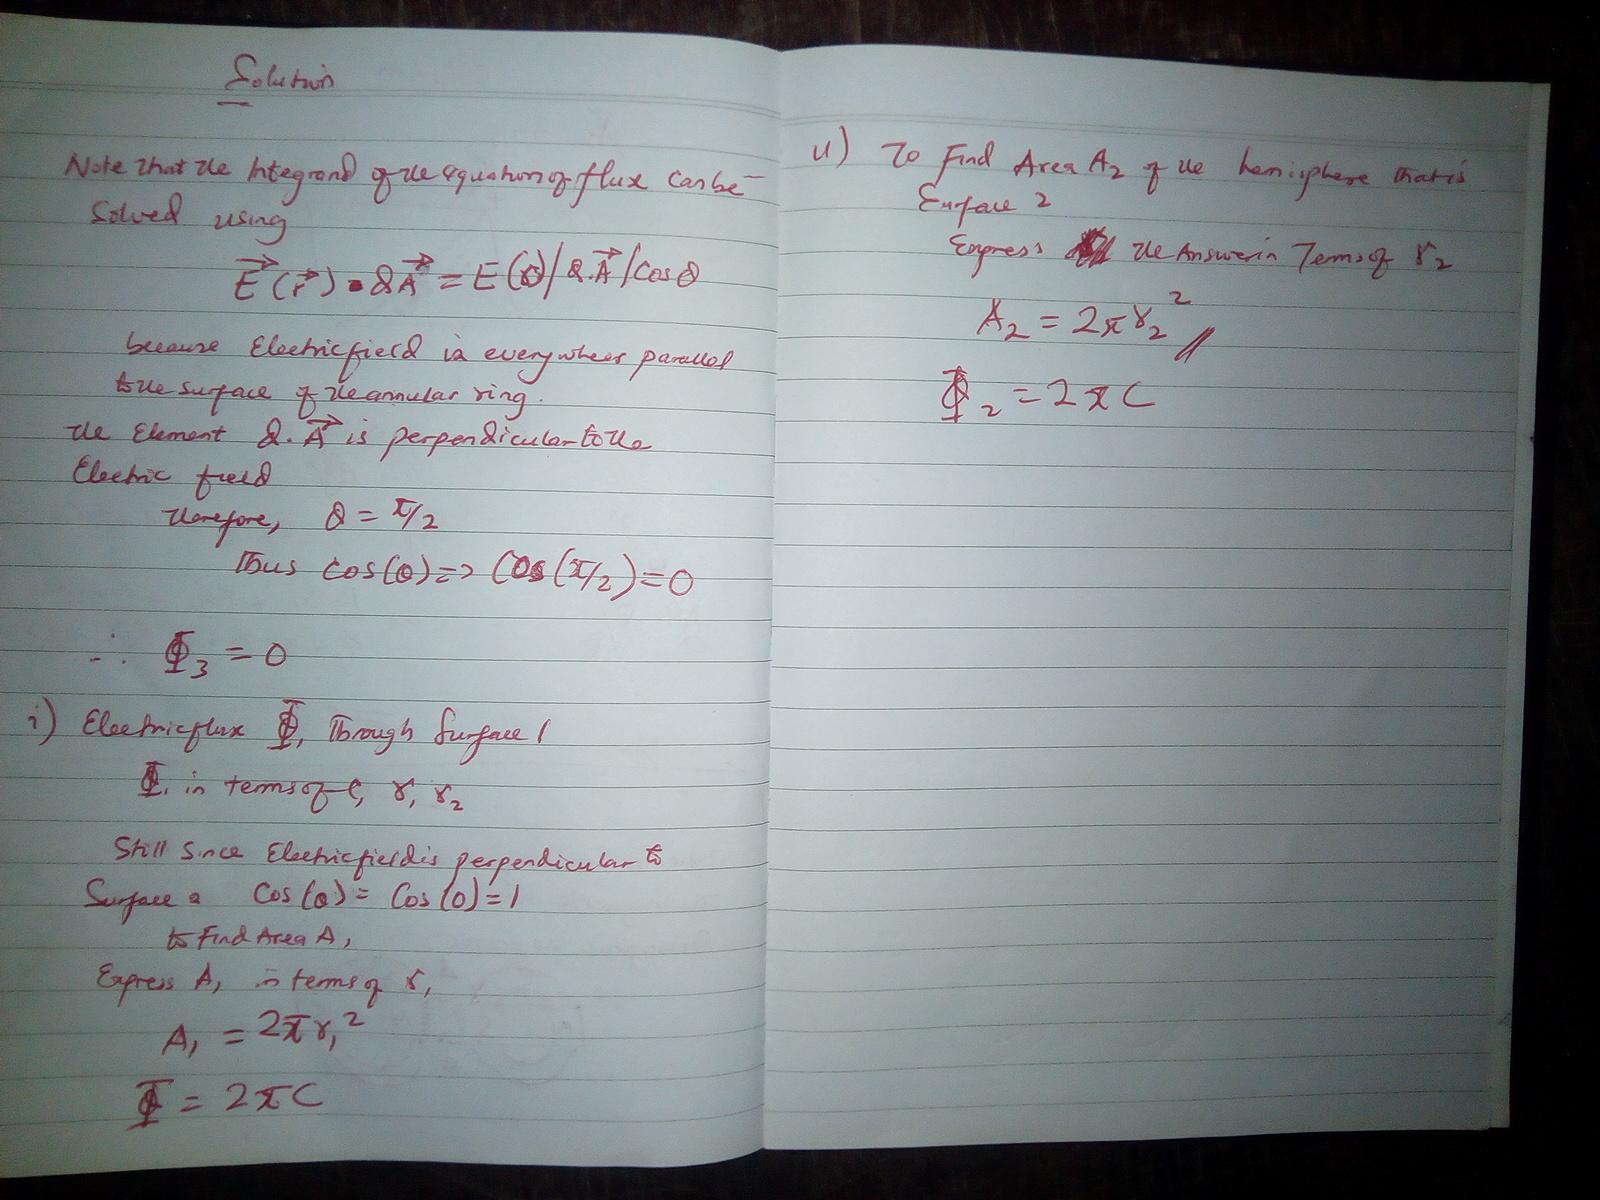 Solution
Note that the Integrand of the equation of flux can be
Solved using
E⃗(r⃗) • dA⃗ = E(r)|d.A⃗|cosθ
because Electric field is everywhere parallel
to the surface of the annular ring.
the Element d.A⃗ is perpendicular to the
Electric field
therefore, θ = π/2
Thus cos(θ) => Cos(π/2) = 0
∴ Φ₃ = 0
i) Electric flux Φ₁ Through Surface 1
Φ₁ in terms of C, r₁ r₂
Still Since Electric field is perpendicular to
Surface Cos(θ) = Cos(0) = 1
to Find Area A₁
Express A₁ in terms of r₁
A₁ = 2πr₁²
Φ = 2πC
ii) To Find Area A₂ of the hemisphere that is
Surface 2
Express the Answer in Terms of r₂
A₂ = 2πr₂²
Φ₂ = 2πC